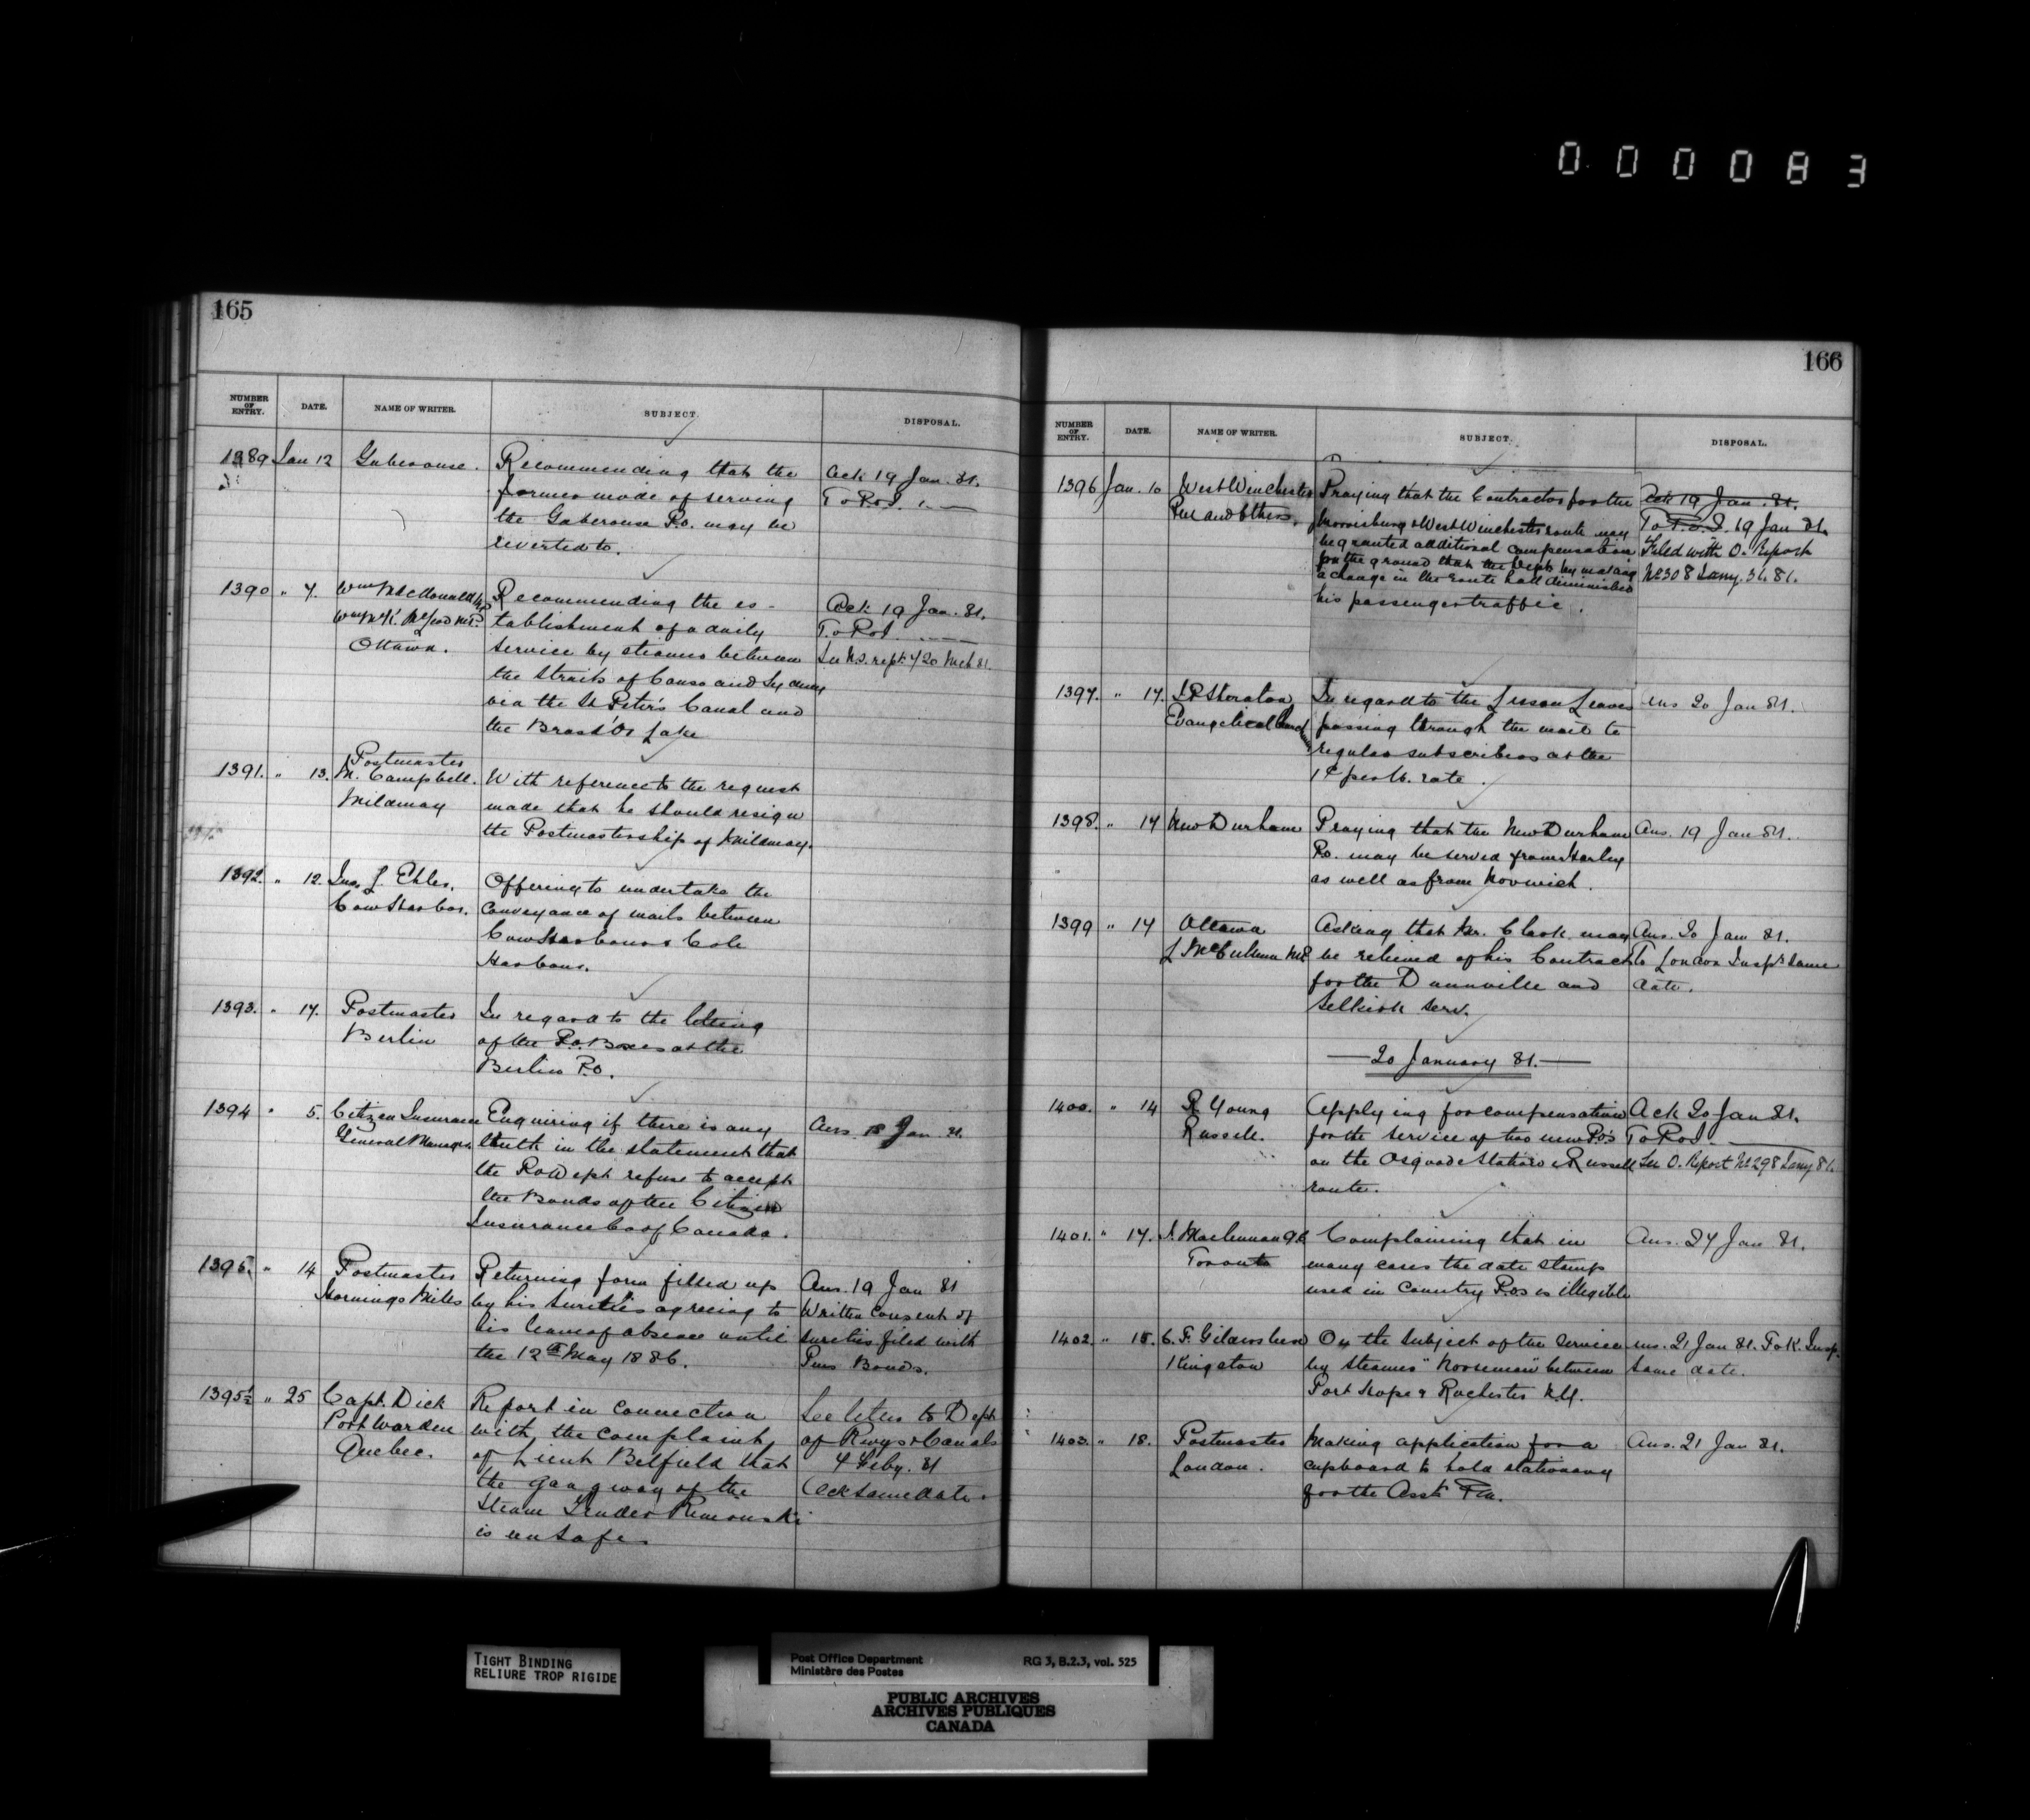 0 0 0 0 8 3
165
NUMBER OF ENTRY. DATE. NAME OF WRITER. SUBJECT. DISPOSAL.
1389 Jan 12 Gabarouse. Recommending that the Ack 19 Jan. 81.
former mode of serving To P.O.I. "
the Gabarouse P.O. may be
reverted to.
1390 " 7. Wm McDonald MP Recommending the es- Ack 19 Jan. 81.
tablishment of a daily To P.O.I.
Ottawa. service by steamer between See N.S. rept. 420 Mch 81.
the Straits of Canso and Sydney
via the St Peter's Canal and
the Bras d'Or Lake
Postmaster
1391. " 13. M. Campbell. With reference to the request
Mildmay made that he should resign
the Postmastership of Mildmay.
1392. " 12. Jno. J. Ehler. Offering to undertake the
Cow Harbor. Conveyance of mails between
Cow Harbour & Cole
Harbour.
1393. " 17. Postmaster In regard to the letting
Berlin of the P.O. Boxes at the
Berlin P.O.
1394 " 5. Citizen Insurance Enquiring if there is any Ans. 18 Jan. 81.
General Manager truth in the statement that
the P.O. Dept refuse to accept
the Bonds of the Citizen
Insurance Co of Canada.
1395. " 14 Postmaster Returning form filled up Ans. 19 Jan 81
Hornings Mills by his sureties agreeing to Written Consent of
his leave of absence until sureties filed with
the 12th May 1886. Pms Bonds.
1395½ " 25 Capt. Dick Report in connection See letter to Dept
Port Warden with the complaint of Rwys & Canals
Quebec. of Lieut Belfield that 4 Feby. 81
the gangway of the Ack same date.
Steam Tender Rimouski
is unsafe
166
NUMBER OF ENTRY. DATE. NAME OF WRITER. SUBJECT. DISPOSAL.
1396 Jan. 10 West Winchester Praying that the Contractor for the Ack 19 Jan. 81.
and Others. Morrisburg & West Winchester route may To P.O.I. 19 Jan 81.
be granted additional compensation Filed with O. Report
on the ground that the Dept by making No 308 Jany. 31. 81.
a change in the route had diminished
his passenger traffic.
1397. " 17. In regard to the Lesson Leaves Ans 20 Jan 81.
Evangelical passing through the mail to
regular subscribers at the
1¢ per lb. rate.
1398. " 17 New Durham Praying that the New Durham Ans. 19 Jan 81.
P.O. may be served from Harley
as well as from Norwich.
1399 " 17 Ottawa Asking that Mr. Clark may Ans. 20 Jan 81.
L McCallum MP be relieved of his Contract To London Inspr same
for the Dunnville and date.
Selkirk serv.
20 January 81.
1400. " 14 R. Young Applying for compensation Ack 20 Jan 81.
Russell. for the service of two new P.O's To P.O.I.
on the Osgoode Station & Russell See O. Report No 298 Jany 81.
route.
1401. " 17. J. Maclennan Q.C. Complaining that in Ans. 24 Jan 81.
Toronto many cases the date stamp
used in Country P.Os is illegible
1402. " 18. C. F. Gildersleeve On the subject of the Service Ans. 21 Jan 81. To K. Insp.
Kingston by steamer "Norseman" between same date.
Port Hope & Rochester N.Y.
1403. " 18. Postmaster Making application for a Ans. 21 Jan 81.
London. cupboard to hold stationary
for the Asst P.M.
TIGHT BINDING
RELIURE TROP RIGIDE
Post Office Department RG 3, B.2.3, vol. 525
Ministère des Postes
PUBLIC ARCHIVES
ARCHIVES PUBLIQUES
CANADA